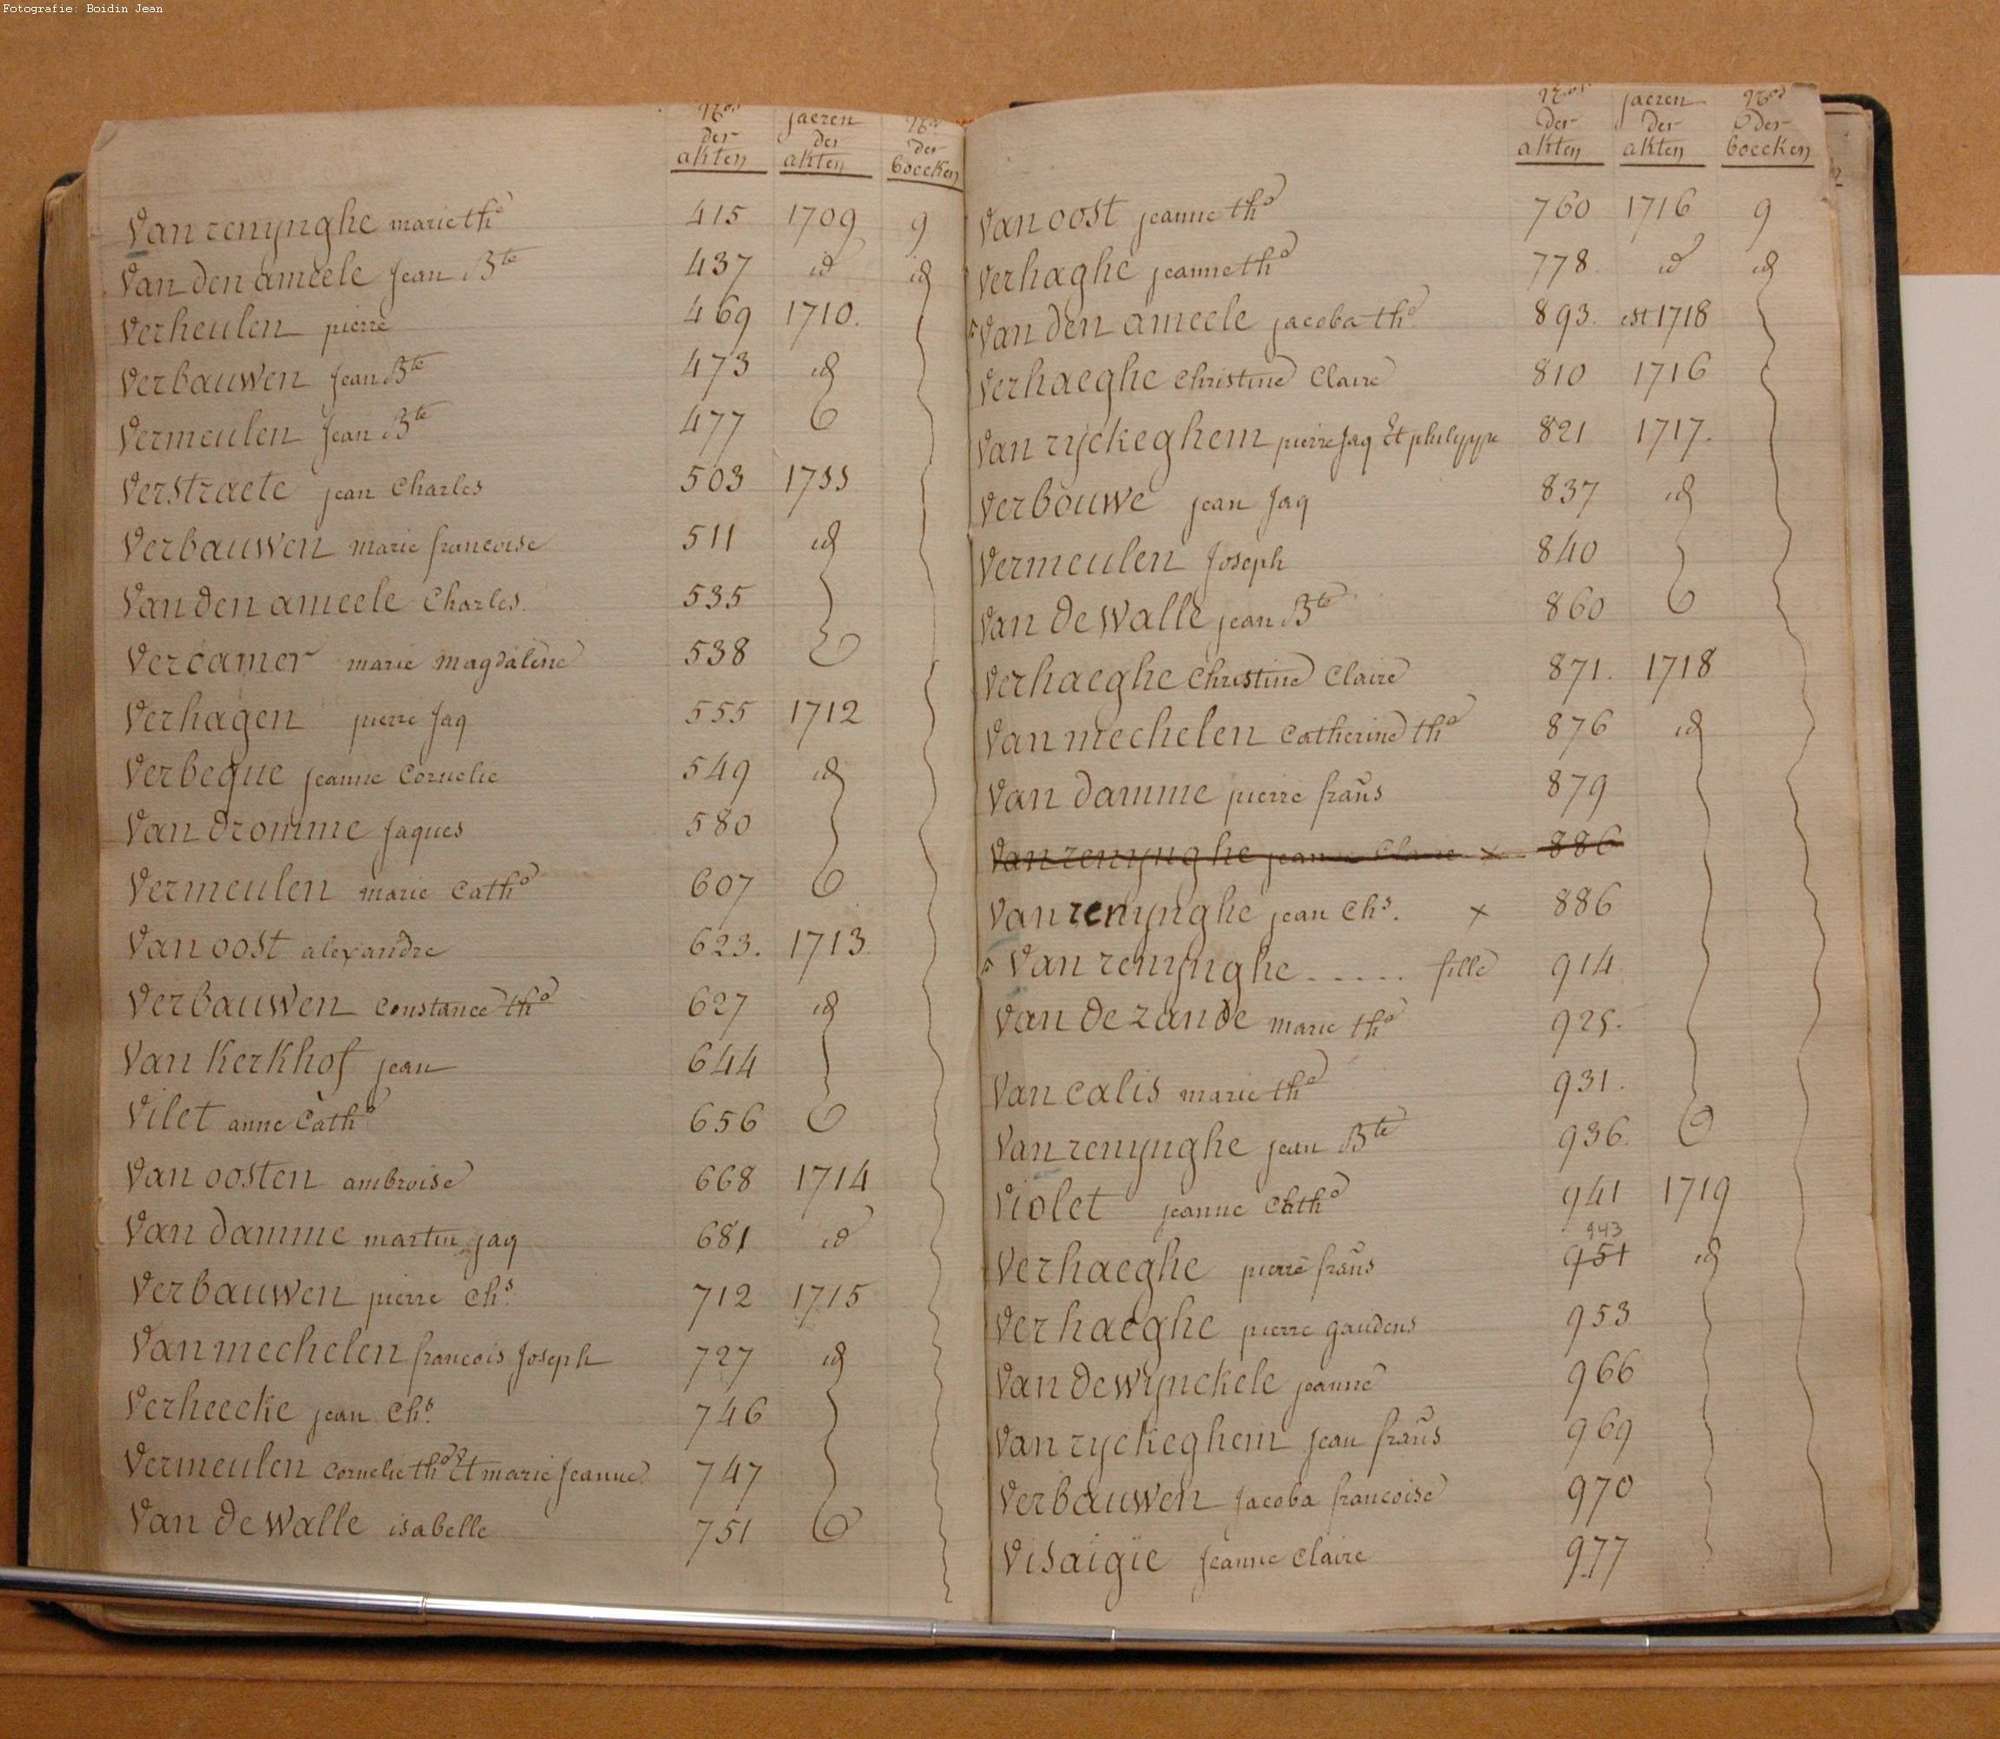 Fotografie: Boidin Jean
Nos jaeren Nos
der der der
akten akten boecken
Van renynghe marie the 415 1709 9
Van den ameele Jean Bte 437 id id
Verheulen pierre 469 1710.
Verbauwen Jean Bte 473 id
Vermeulen Jean Bte 477
Verstraete jean Charles 503 1711
Verbauwen marie francoise 511 id
Van den ameele Charles. 535
Vercamer marie magdalene 538
Verhagen pierre Jaq 555 1712
Verbeque jeanne Cornelie 549 id
Van dromme Jaques 580
Vermeulen marie Cathe 607
Van oost alexandre 623. 1713.
Verbauwen Constance the 627 id
Van Kerkhof jean 644
Vilet anne Cathe 656
Van oosten ambroise 668 1714
Van damme martin jaq 681 id
Verbauwen pierre Chs. 712 1715
Van mechelen francois Joseph 727 id
Verheecke jean Chs. 746
Vermeulen Cornelie the Et marie Jeanne 747
Van de Walle isabelle 751
Nos jaeren Nos
der der der
akten akten boecken
Van oost jeanne the 760 1716 9
Verhaghe jeanne the 778. id id
Van den ameele jacoba the 893. est 1718
Verhaeghe Christine Claire 810 1716
Van ryckeghem pierre Jaq Et philippe 821 1717.
Verbouwe jean Jaq 837 id
Vermeulen Joseph 840
Van de Walle jean Bte 860
Verhaeghe Christine Claire 871. 1718
Van mechelen Catherine the 876 id
Van damme pierre frans 879
Van renynghe jeanne Claire x 886
Van renynghe jean Chs. x 886
Van renynghe ..... fille 914
Van de zande marie the 925.
Van Calis marie the 931.
Van renynghe jean Bte 936.
Violet jeanne Cathe 941 1719
943
Verhaeghe pierre frans 951 id
Verhaeghe pierre gaudens 953
Van de wynckele jeanne 966
Van ryckeghem Jean frans 969
Verbauwen Jacoba francoise 970
Visaigie Jeanne Claire 977